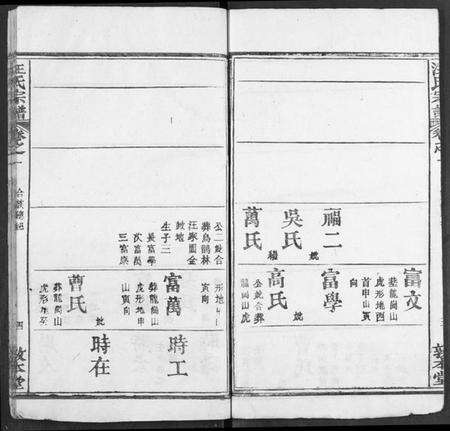 汪氏宗譜
卷之一
敦本堂
福二
娩
吳氏
繼
萬氏
富文
葬龍崗山
虎形地酉
首甲山寅
向
富學
娩
高氏
公娩合葬
龍崗山虎
形地
寅向
公二娩合
葬烏鵲林
汪家園金
生子二
長富學
次富萬
三富
富萬
葬龍崗山
虎形地申
山寅向
娩
曹氏
葬龍崗山
虎形地
時工
時在
汪氏宗譜
卷之一
四
敦本堂